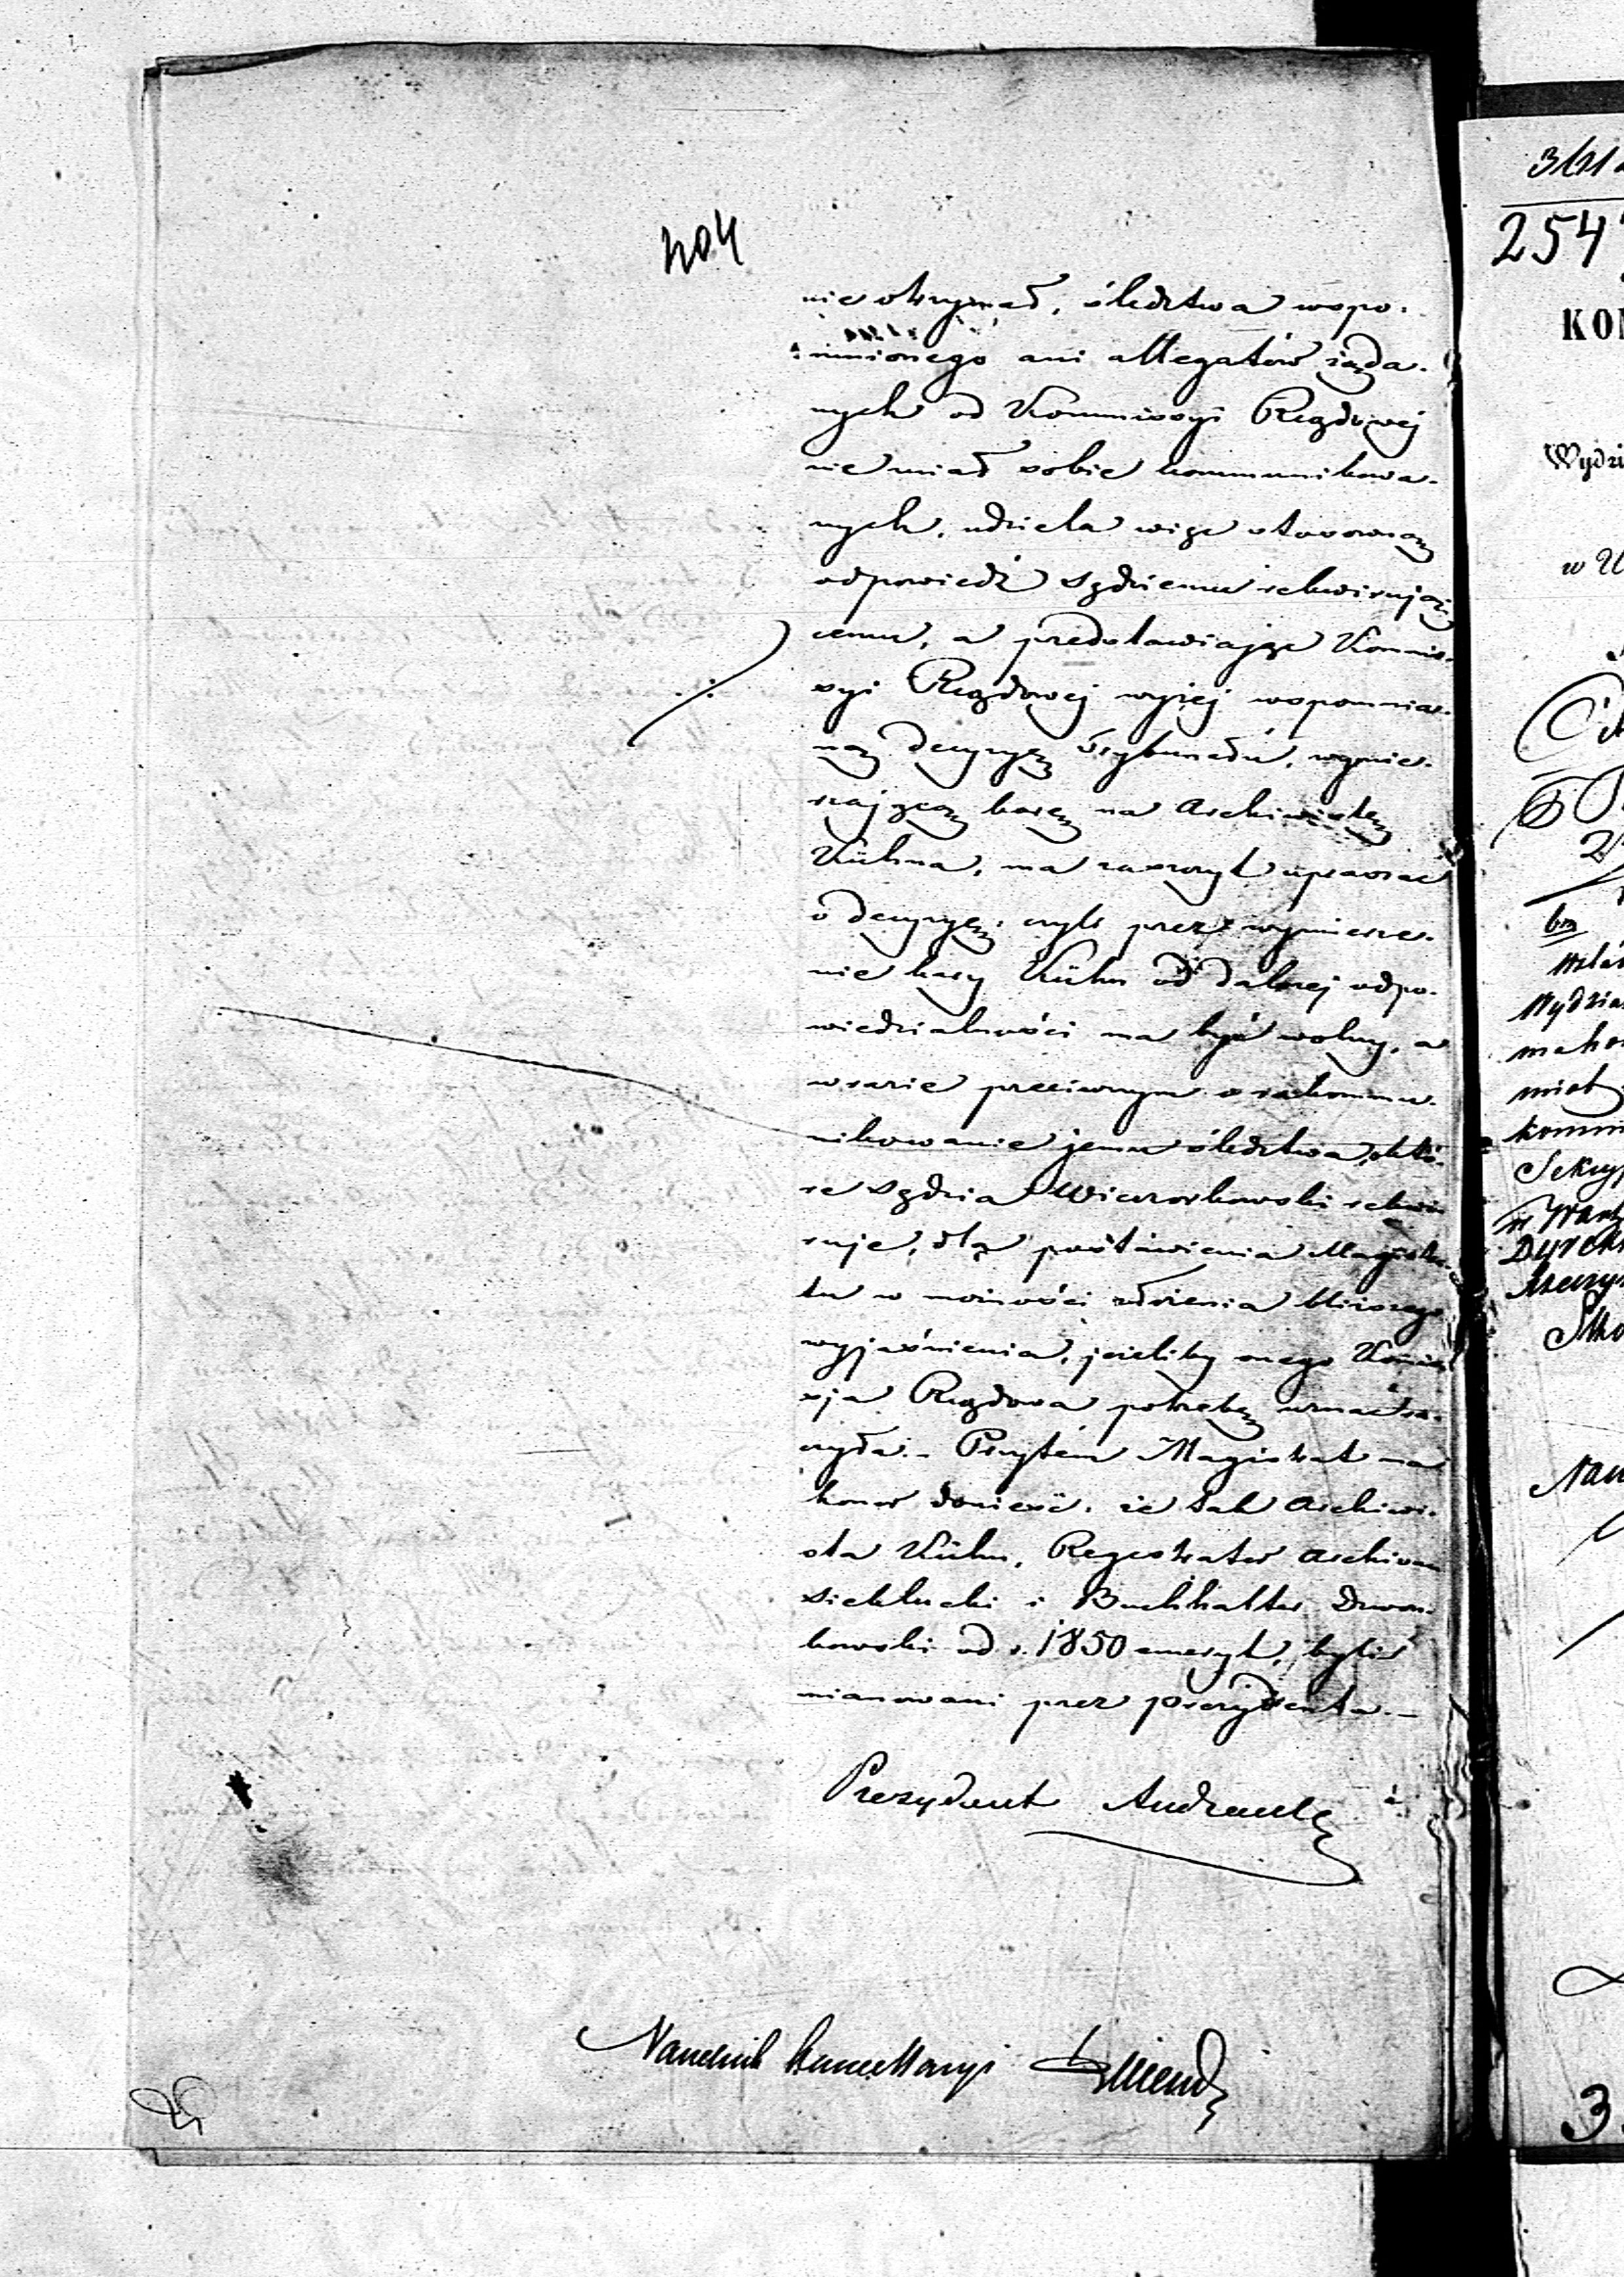 404
nie otrzymał, śledztwa wspo-
mnionego ani allegatów żąda-
nych od Kommissyi Rządowej
nie miał sobie kommunikowa-
nych, udziela więc stosowną
odpowiedź Sędziemu rekwirują-
cemu, a przedstawiając Kommis-
syi Rządowej wyżej wspomnia-
ną decyzyę Trybunału, wymie-
rzającą karę na Archiwistę
Kühna, ma zaszczyt upraszać
o decyzyę: czyli przez wymierze-
nie kary Kühn od dalszej odpo-
wiedzialności ma być wolny, a
w razie przeciwnym o zakommu-
nikowanie jemu śledztwa, któ-
re Sędzia Wieczorkowski rekwi
ruje, dla postawienia Magistra-
tu w możności udzielenia bliższego
wyjaśnienia, jeżeliby onego Kommis
sja Rządowa potrzebę uznać ra-
czyła.- Przytem Magistrat ma
honor donieść, że tak Archiwi-
sta Kühn, Registrator Archiwum
Siekłucki i Buchhalter
kowski od r. 1850 emeryt, byli
mianowani przez Prezydenta.-
Prezydent Andrault
Naczelnik Kancellaryi
3
254
KO
Wydzi
w
Wydzia
komm
Sekry
Dyrek
Nacz
3